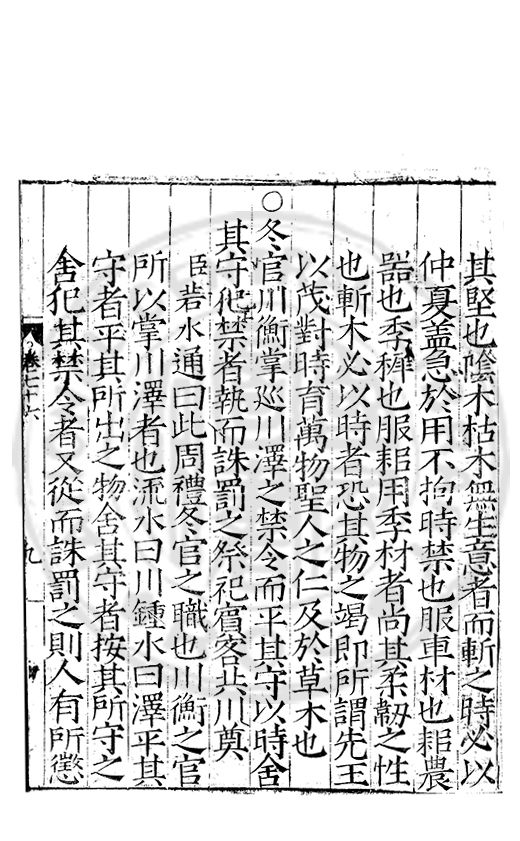 其堅也陰木枯木無生意者而斬之時必以
仲夏蓋急於用不拘時禁也服車材也耜農
器也季穉也服耜用季材者尚其柔韌之性
也斬木必以時者恐其物之竭即所謂先王
以茂對時育萬物聖人之仁及於草木也
○冬官川衡掌巡川澤之禁令而平其守以時舍
其守犯禁者執而誅罰之祭祀賓客共川奠
臣若水通曰此周禮冬官之職也川衡之官
所以掌川澤者也流水曰川鍾水曰澤平其
守者平其所出之物舍其守者按其所守之
舍犯其禁令者又從而誅罰之則人有所懲
卷七十六
九